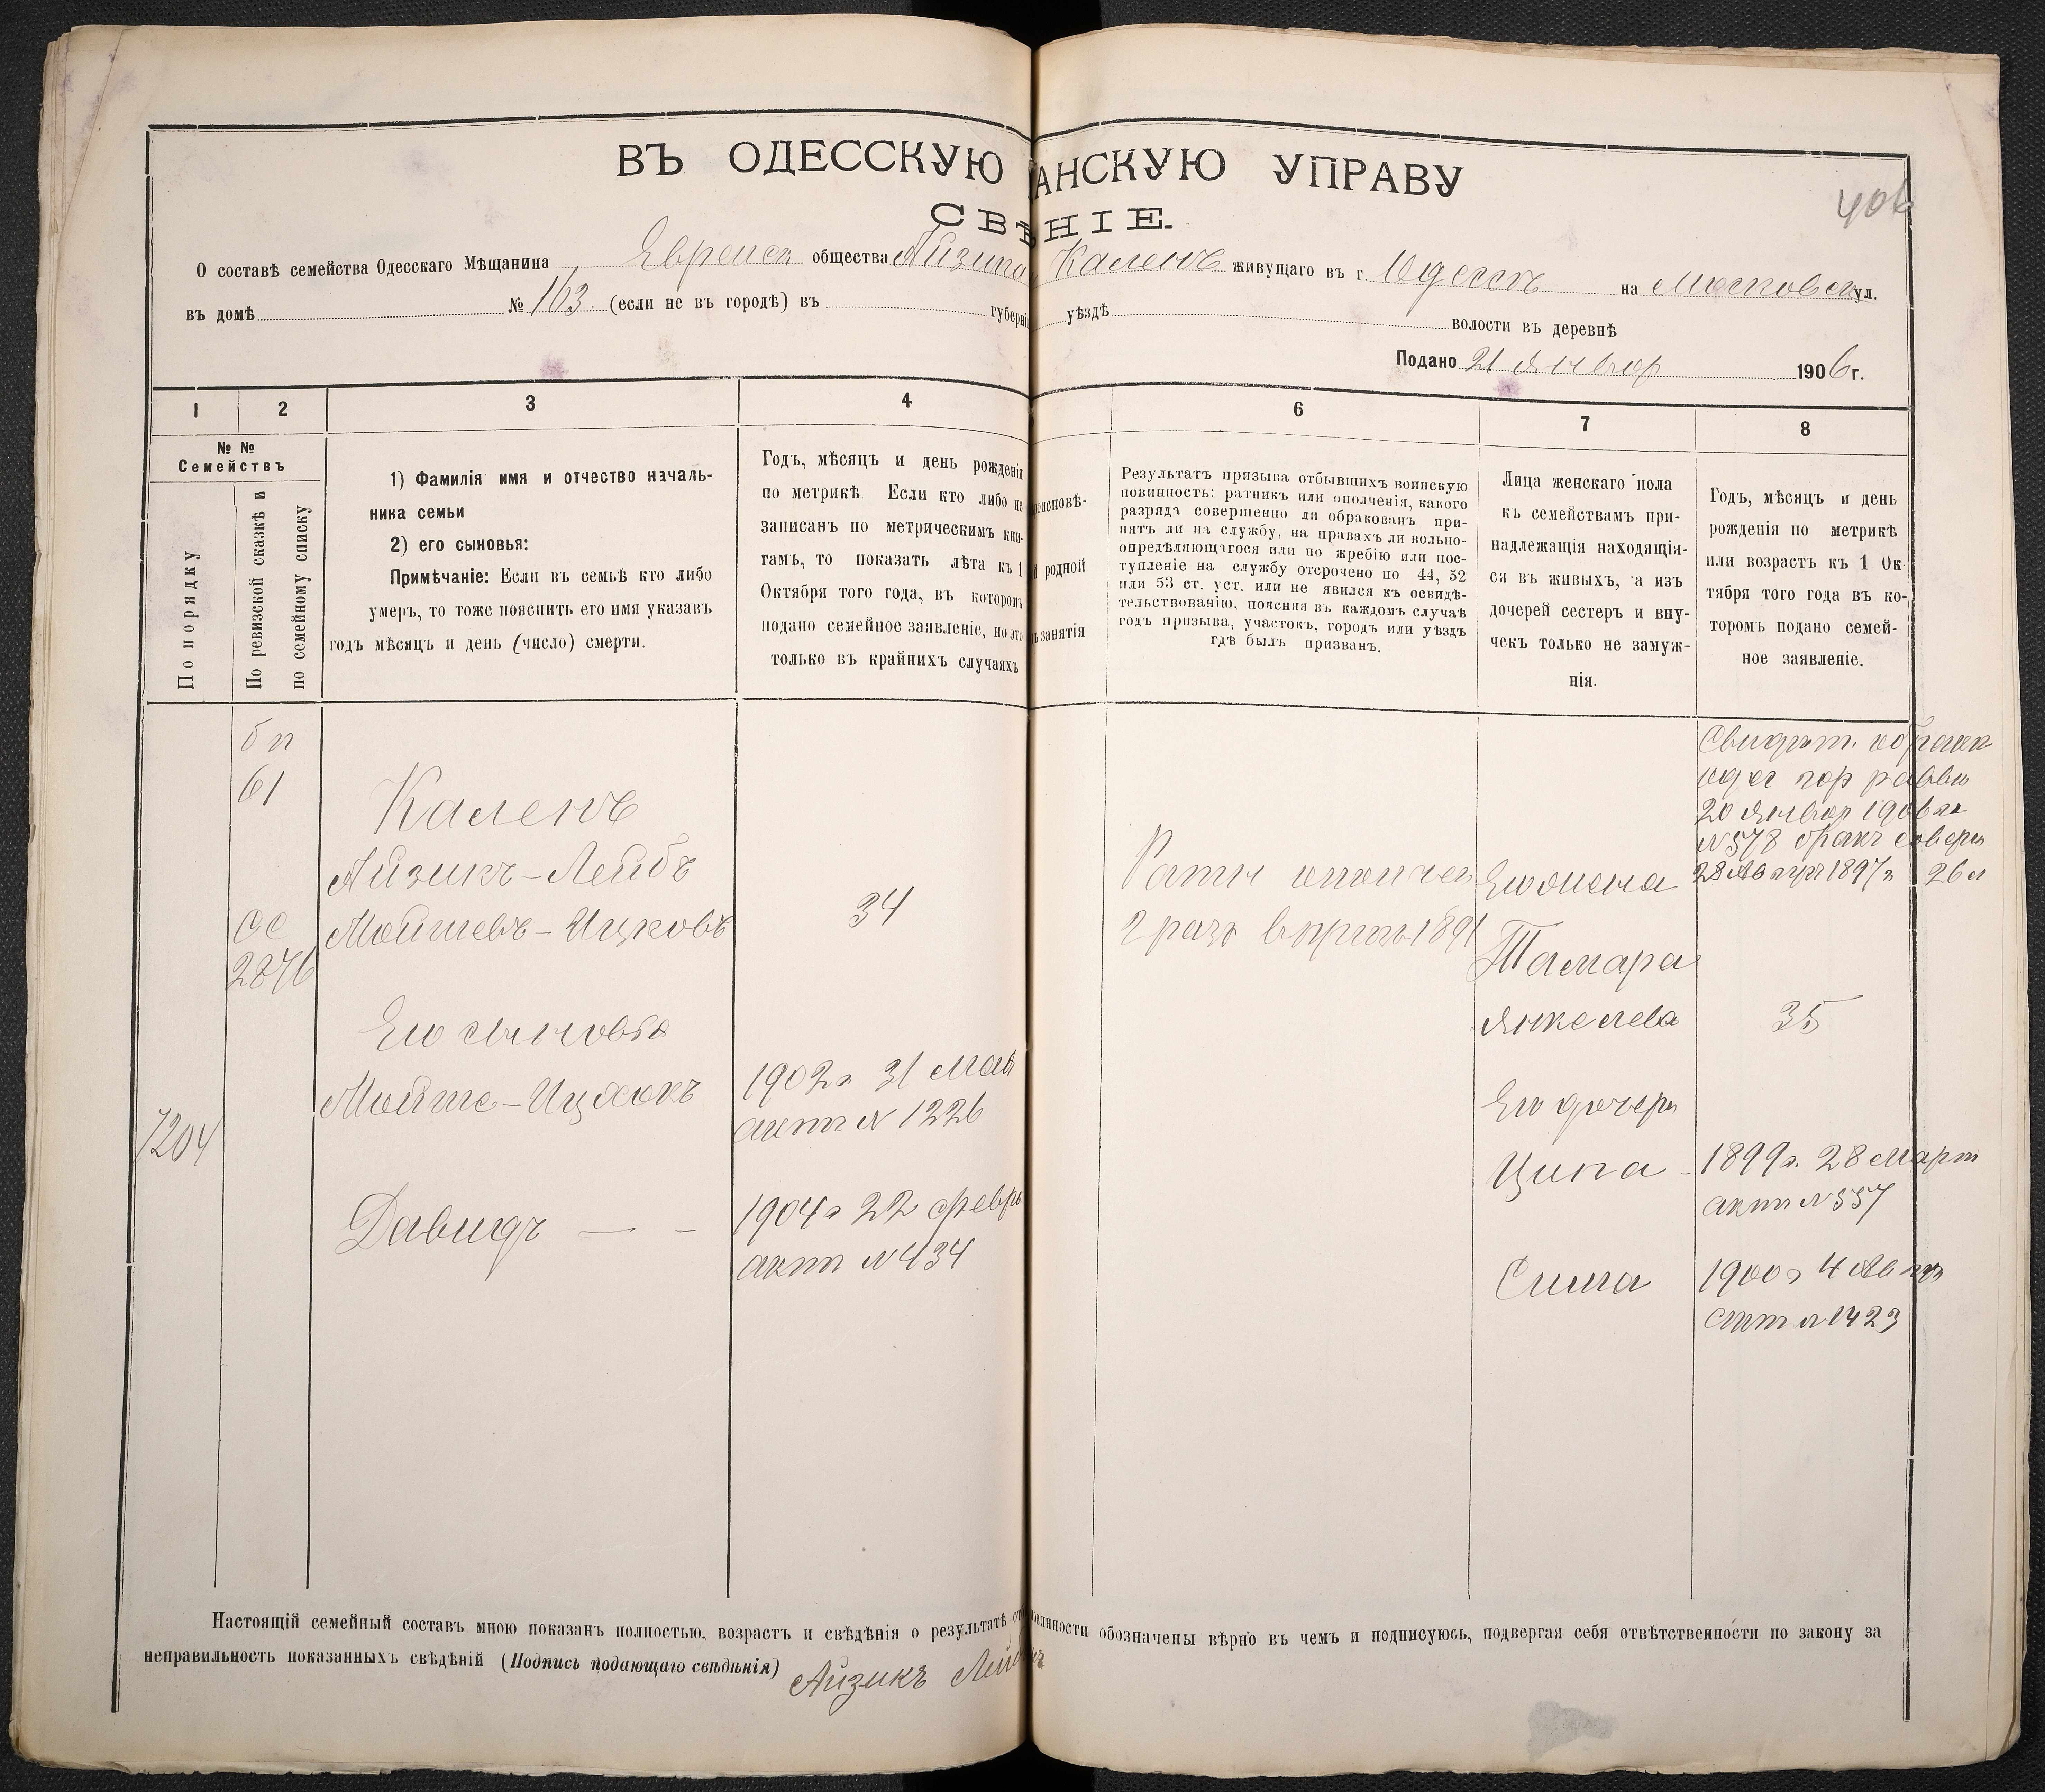 ВЪ ОДЕССКУЮ АНСКУЮ УПРАВУ
406
СВѢНІЕ.
О составѣ семейства Одесскаго Мѣщанина Еврейск общества Айзика Каленъ живущаго въ г. Одессѣ на Московск ул.
въ домѣ № 163. (если не въ городѣ) въ губерні уѣздѣ волости въ деревнѣ
Подано 21 Январ 1906 г.
1
2
3
4
6
7
8
№ №
Семействъ
По порядку
По ревизской сказкѣ и
по семейному списку
1) Фамилія имя и отчество началь-
ника семьи
2) его сыновья:
Примѣчаніе: Если въ семьѣ кто либо
умеръ, то тоже пояснить его имя указавъ
годъ мѣсяцъ и день (число) смерти.
Годъ, мѣсяцъ и день рожденія
по метрикѣ Если кто либо не
записанъ по метрическимъ кни-
гамъ, то показать лѣта къ 1
Октября того года, въ которомъ
подано семейное заявленіе, но это
только въ крайнихъ случаяхъ
роисповѣ-
родной
занятія
Результатъ призыва отбывшихъ воинскую
повинность: ратникъ или ополченія, какого
разряда совершенно ли обракованъ при-
нятъ ли на службу, на правахъ ли вольно-
опредѣляющагося или по жребію или пос-
тупленіе на службу отсрочено по 44, 52
или 53 ст. уст. или не явился къ освидѣ-
тельствованію, поясняя въ каждомъ случаѣ
годъ призыва, участокъ, городъ или уѣздъ
гдѣ былъ призванъ.
Лица женскаго пола
къ семействамъ при-
надлежащія находящія-
ся въ живыхъ, а изъ
дочерей сестеръ и вну-
чекъ только не замуж-
нія.
Годъ, мѣсяцъ и день
рожденія по метрикѣ
или возрастъ къ 1 Ок
тября того года въ ко-
торомъ подано семей-
ное заявленіе.
бп
61
Каленъ
Айзикъ-Лейбъ
Мойшевъ-Ицковъ
34
СС
2876
Его сыновья
Мойше-Ицхокъ
1902г 31 Мая
актъ № 1226
1204
Давидъ — -
1904г 22 февр
актъ № 434
Ратн ополчен
2 разр въ призывъ 1891
Его жена
Тамара
Янкелева
35
Свидѣт. о брак
одес гор равви
20 Январ 1906 г
№ 578 бракъ соверш
28 Август 1897 г 26 л
Его дочери
Ципа -
1899г. 28 Март
актъ № 557
Сима
1900г 4 Авгус
актъ № 1423
Настоящій семейный составъ мною показанъ полностью, возрастъ и свѣдѣнія о результатѣ от винности обозначены вѣрно въ чемъ и подписуюсь, подвергая себя отвѣтственности по закону за
неправильность показанныхъ свѣдѣній (Подпись подающаго свѣдѣнія) Айзикъ